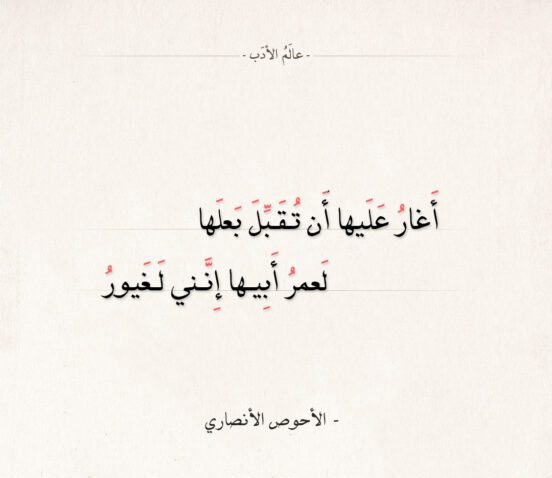 - عالَمُ الأدَب -
أَغارُ عَلَيها أَن تُقَبِّلَ بَعلَها
لَعمرُ أَبِيها إِنَّني لَغَيورُ
- الأحوص الأنصاري